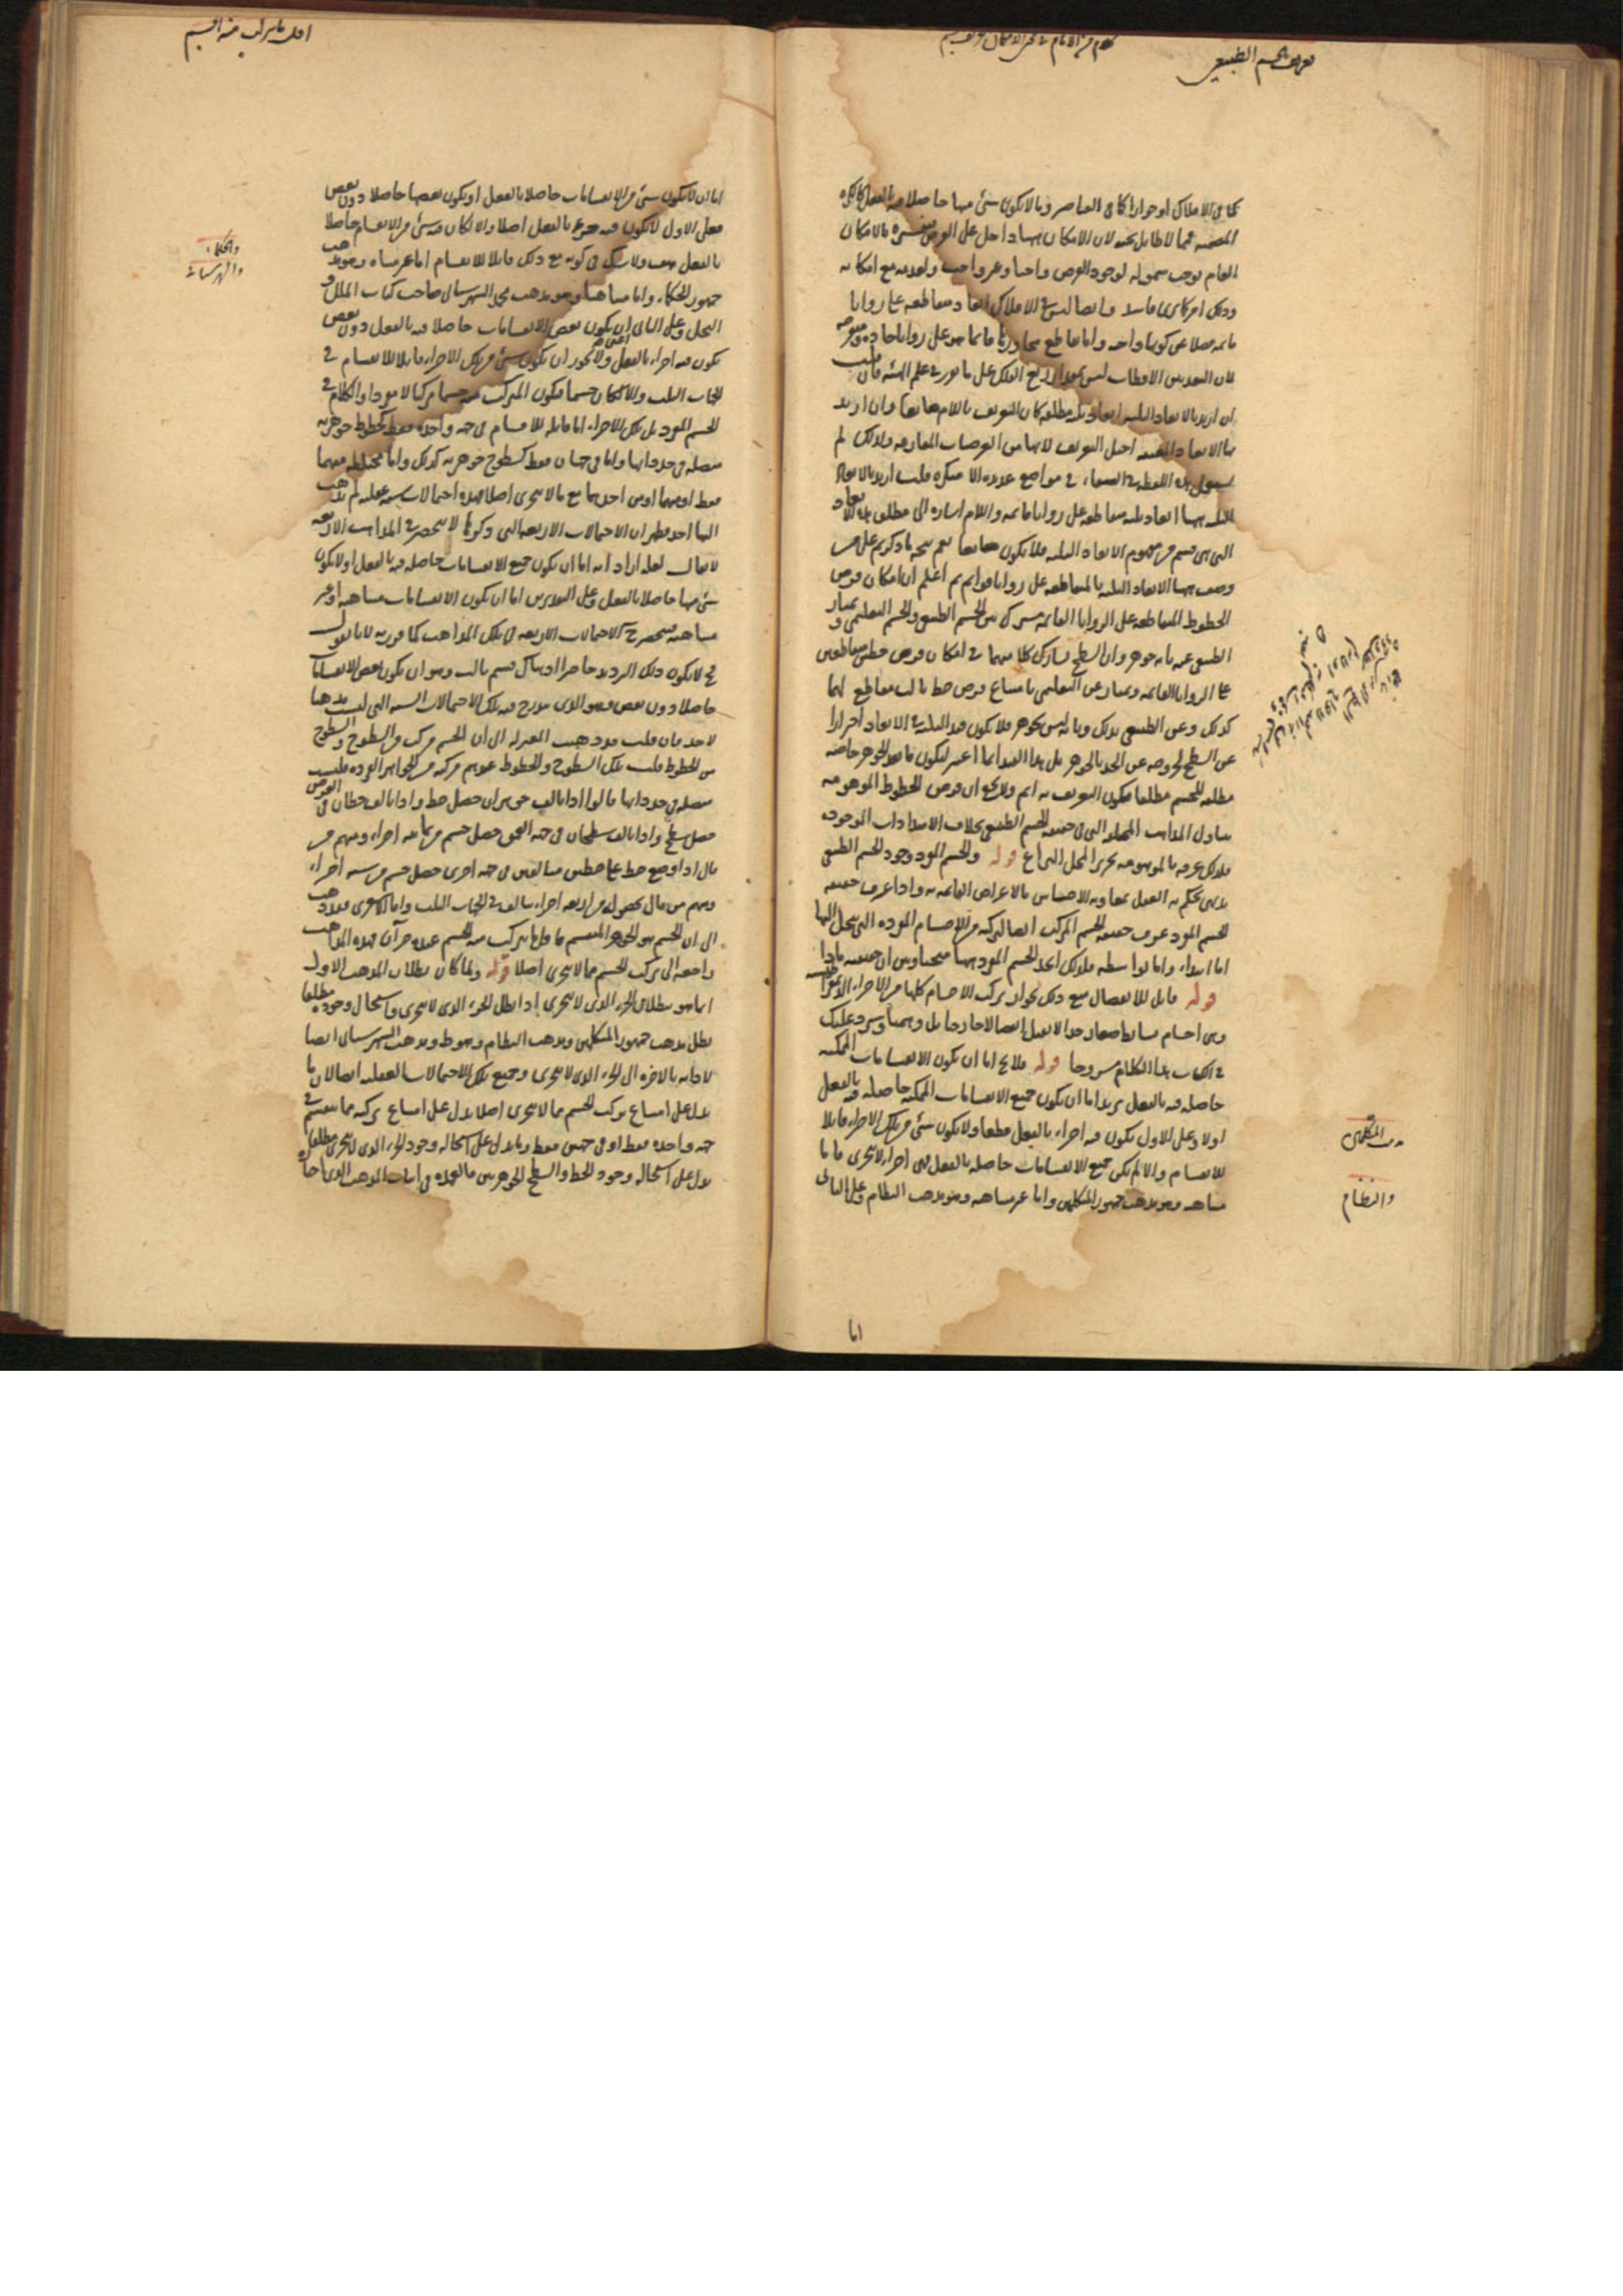 تعريف الجسم الطبيعي
كما في الافلاك او جوازا كما في العناصر وما لا يكون شئ منها حاصلا فيه بالفعل كالكرة
المصمتة فمما لا طائل تحته لان الامكان ههنا داخل على الفرض بالامكان
العام يوجب شموله لوجود الفرض واجبا وغير واجب ولعدمه مع امكانه
وايضا ليس في الافلاك ابعاد متقاطعة على زوايا
قائمة فضلا عن كونها واجبة وانما تقاطع محاورها قائما هو على زوايا حادة ومنفرجة
لان البعد بين الاقطاب ليس بمقدار ربع الفلك على ما تقرر في علم الهيئة فان قلت
ان اريد بالابعاد الثلثة ابعاد ثلثة مطلقة كان التعريف باللام ضايعا وان اريد
بها الابعاد المعينة اختل التعريف لانها من العرضيات المفارقة ولذلك لم
يستعمل هذه اللفظة في الشفاء في مواضع عديدة الا منكرة قلت اريد بالابعاد
الثلثة ههنا ابعاد ثلثة متقاطعة على زوايا قائمة واللام اشارة الى مطلق هذه الابعاد
التي هي قسم من مفهوم الابعاد الثلثة فلا يكون ضايعا نعم يتجه ما ذكرتم على من
وصف ههنا الابعاد الثلثة بالمتقاطعة على زوايا قوائم ثم اعلم ان امكان فرض
الخطوط المتقاطعة على الزوايا القائمة مشترك بين الجسم الطبيعي والجسم التعليمي ويمتاز
الطبيعي عنه بانه جوهر وان السطح يشارك كلا منهما في امكان فرض خطين متقاطعين
على الزوايا القائمة ويمتاز عن التعليمي بامتناع فرض خط ثالث مقاطع لهما
كذلك وعن الطبيعي بذلك وبانه ليس بجوهر فلا يكون قيد الثلثة في الابعاد احترازا
عن السطح لخروجه عن الحد بالجوهر بل هذا القيد انما اعتبر ليكون ما بعد الجوهر خاصة
مطلقة للجسم مطلقا فيكون التعريف به اتم ولا يخفى ان فرض الخطوط الموهومة
يتناول المذاهب المختلفة التي في حقيقة الجسم الطبيعي بخلاف الامتدادات الموجودة
فلذلك عرفه بالموهومة تحريرا لمحل النزاع قوله والجسم المفرد وجود الجسم الطبيعي
بديهي يحكم به العقل بمعاونة الاحساس بالاعراض القائمة به واذا عرف حقيقة
الجسم المفرد عرف حقيقة الجسم المركب ايضا لتركبه من الاجسام المفردة التي ينحل اليها
اما ابتداء واما بواسطة فلذلك اخذ الجسم المفرد ههنا مبحثا وبين ان حقيقته ماذا
قوله قابل للانفصال مع ذلك بجواز تركب الاجسام كلها من الاجزاء
وهي اجسام بسائط صغار جدا لا تقبل انفصالا خارجيا بل وهميا وسيرد عليك
في الكتاب هذا الكلام مشروحا قوله فلا يخ اما ان يكون الانقسامات الممكنة
حاصلة فيه بالفعل يريد اما ان يكون جميع الانقسامات الممكنة حاصلة فيه بالفعل
اولا وعلى الاول يكون فيه اجزاء بالفعل قطعا ولا يكون شئ من تلك الاجزاء قابلا
للانقسام والا لم يكن جميع الانقسامات حاصلة بالفعل فهي اجزاء لا تتجزى فاما
متناهية وهو مذهب جمهور المتكلمين واما غير متناهية وهو مذهب النظام وعلى الثاني
مذهب المتكلمين
والنظام
اما
اقل ما يتركب منه الجسم
اما ان لا يكون شئ من الانقسامات حاصلا بالفعل او يكون بعضها حاصلا دون بعض
فعلى الاول لا يكون فيه جزء بالفعل اصلا والا لكان فيه شئ من الانقسام حاصلا
بالفعل هف ولا شك في كونه مع ذلك قابلا للانقسام اما غير متناه وهو مذهب
جمهور الحكماء واما متناهيا وهو مذهب محمد الشهرستاني صاحب كتاب الملل و
النحل وعلى الثاني ان يكون بعض الانقسامات حاصلا فيه بالفعل دون بعض
يكون فيه اجزاء بالفعل ولا يجوز ان يكون شئ من تلك الاجزاء قابلا للانقسام في
الجهات الثلث والا لكان جسما فيكون المتركب منه جسما مركبا لا مفردا والكلام في
الجسم المفرد بل تلك الاجزاء اما قابلة للانقسام في جهة واحدة فقط كخطوط جوهرية
متصلة في حدد ذاتها واما في جهتان فقط كسطوح جوهرية كذلك واما مختلطة منهما
فقط او منهما او من احدهما مع ما لا يتجزى اصلا فهذه احتمالات ستة عقلية لم يذهب
اليها احد فظهر ان الاحتمالات الاربعة التي ذكرها لا تنحصر في المذاهب الاربعة
لا يقال لعله اراد انه اما ان يكون جميع الانقسامات حاصلة فيه بالفعل او لا يكون
شئ منها حاصلا بالفعل وعلى التقديرين اما ان يكون الانقسامات متناهية او غير
متناهية فتنحصر ح الاحتمالات الاربعة في تلك المذاهب كما قرره لانا نقول
فح لا يكون ذلك الترديد حاصرا اذ هناك قسم ثالث وهو ان يكون بعض الانقسامات
حاصلا دون بعض وهو الذي يندرج فيه تلك الاحتمالات الستة التي ليست مذهبا
لاحد فان قلت قد ذهب المعتزلة الى ان الجسم مركب من السطوح والسطوح
من الخطوط قلت تلك السطوح والخطوط عندهم مركبة من الجواهر الفردة فليست
متصلة في حدد ذاتها قالوا اذا تالف جوهران حصل خط واذا تالف خطان في العرض
حصل سطح واذا تالف سطحان في جهة العمق حصل جسم من ثمانية اجزاء ومنهم من
قال اذا وضع خط على خطين متالفين في جهة اخرى حصل جسم من ستة اجزاء
ومنهم من قال بحصوله من اربعة اجزاء تتالف في الجهات الثلث واما الاشعري فقد ذهب
الى ان الجسم هو الجوهر المنقسم فاقل ما يتركب منه الجسم عنده جزآن فهذه المذاهب
راجعة الى تركب الجسم مما لا يتجزى اصلا قوله ولما كان بطلان المذهب الاول
انما هو ببطلان الجزء الذي لا يتجزى اذا بطل الجزء الذي لا يتجزى واستحال وجوده مطلقا
بطل مذهب جمهور المتكلمين ومذهب النظام وسقط مذهب الشهرستاني ايضا
لادائه بالاخرة الى الجزء الذي لا يتجزى وجميع تلك الاحتمالات العقلية ايضا لان ما
يدل على امتناع تركب الجسم مما لا يتجزى اصلا يدل على امتناع تركبه مما ينقسم في
جهة واحدة فقط او في جهتين فقط وما يدل على استحالة وجود الجزء الذي لا يتجزى مطلقا
يدل على استحالة وجود الخط والسطح الجوهريين فالعمدة في اثبات المذهب الذي اختاره
والحكماء
والشهرستاني